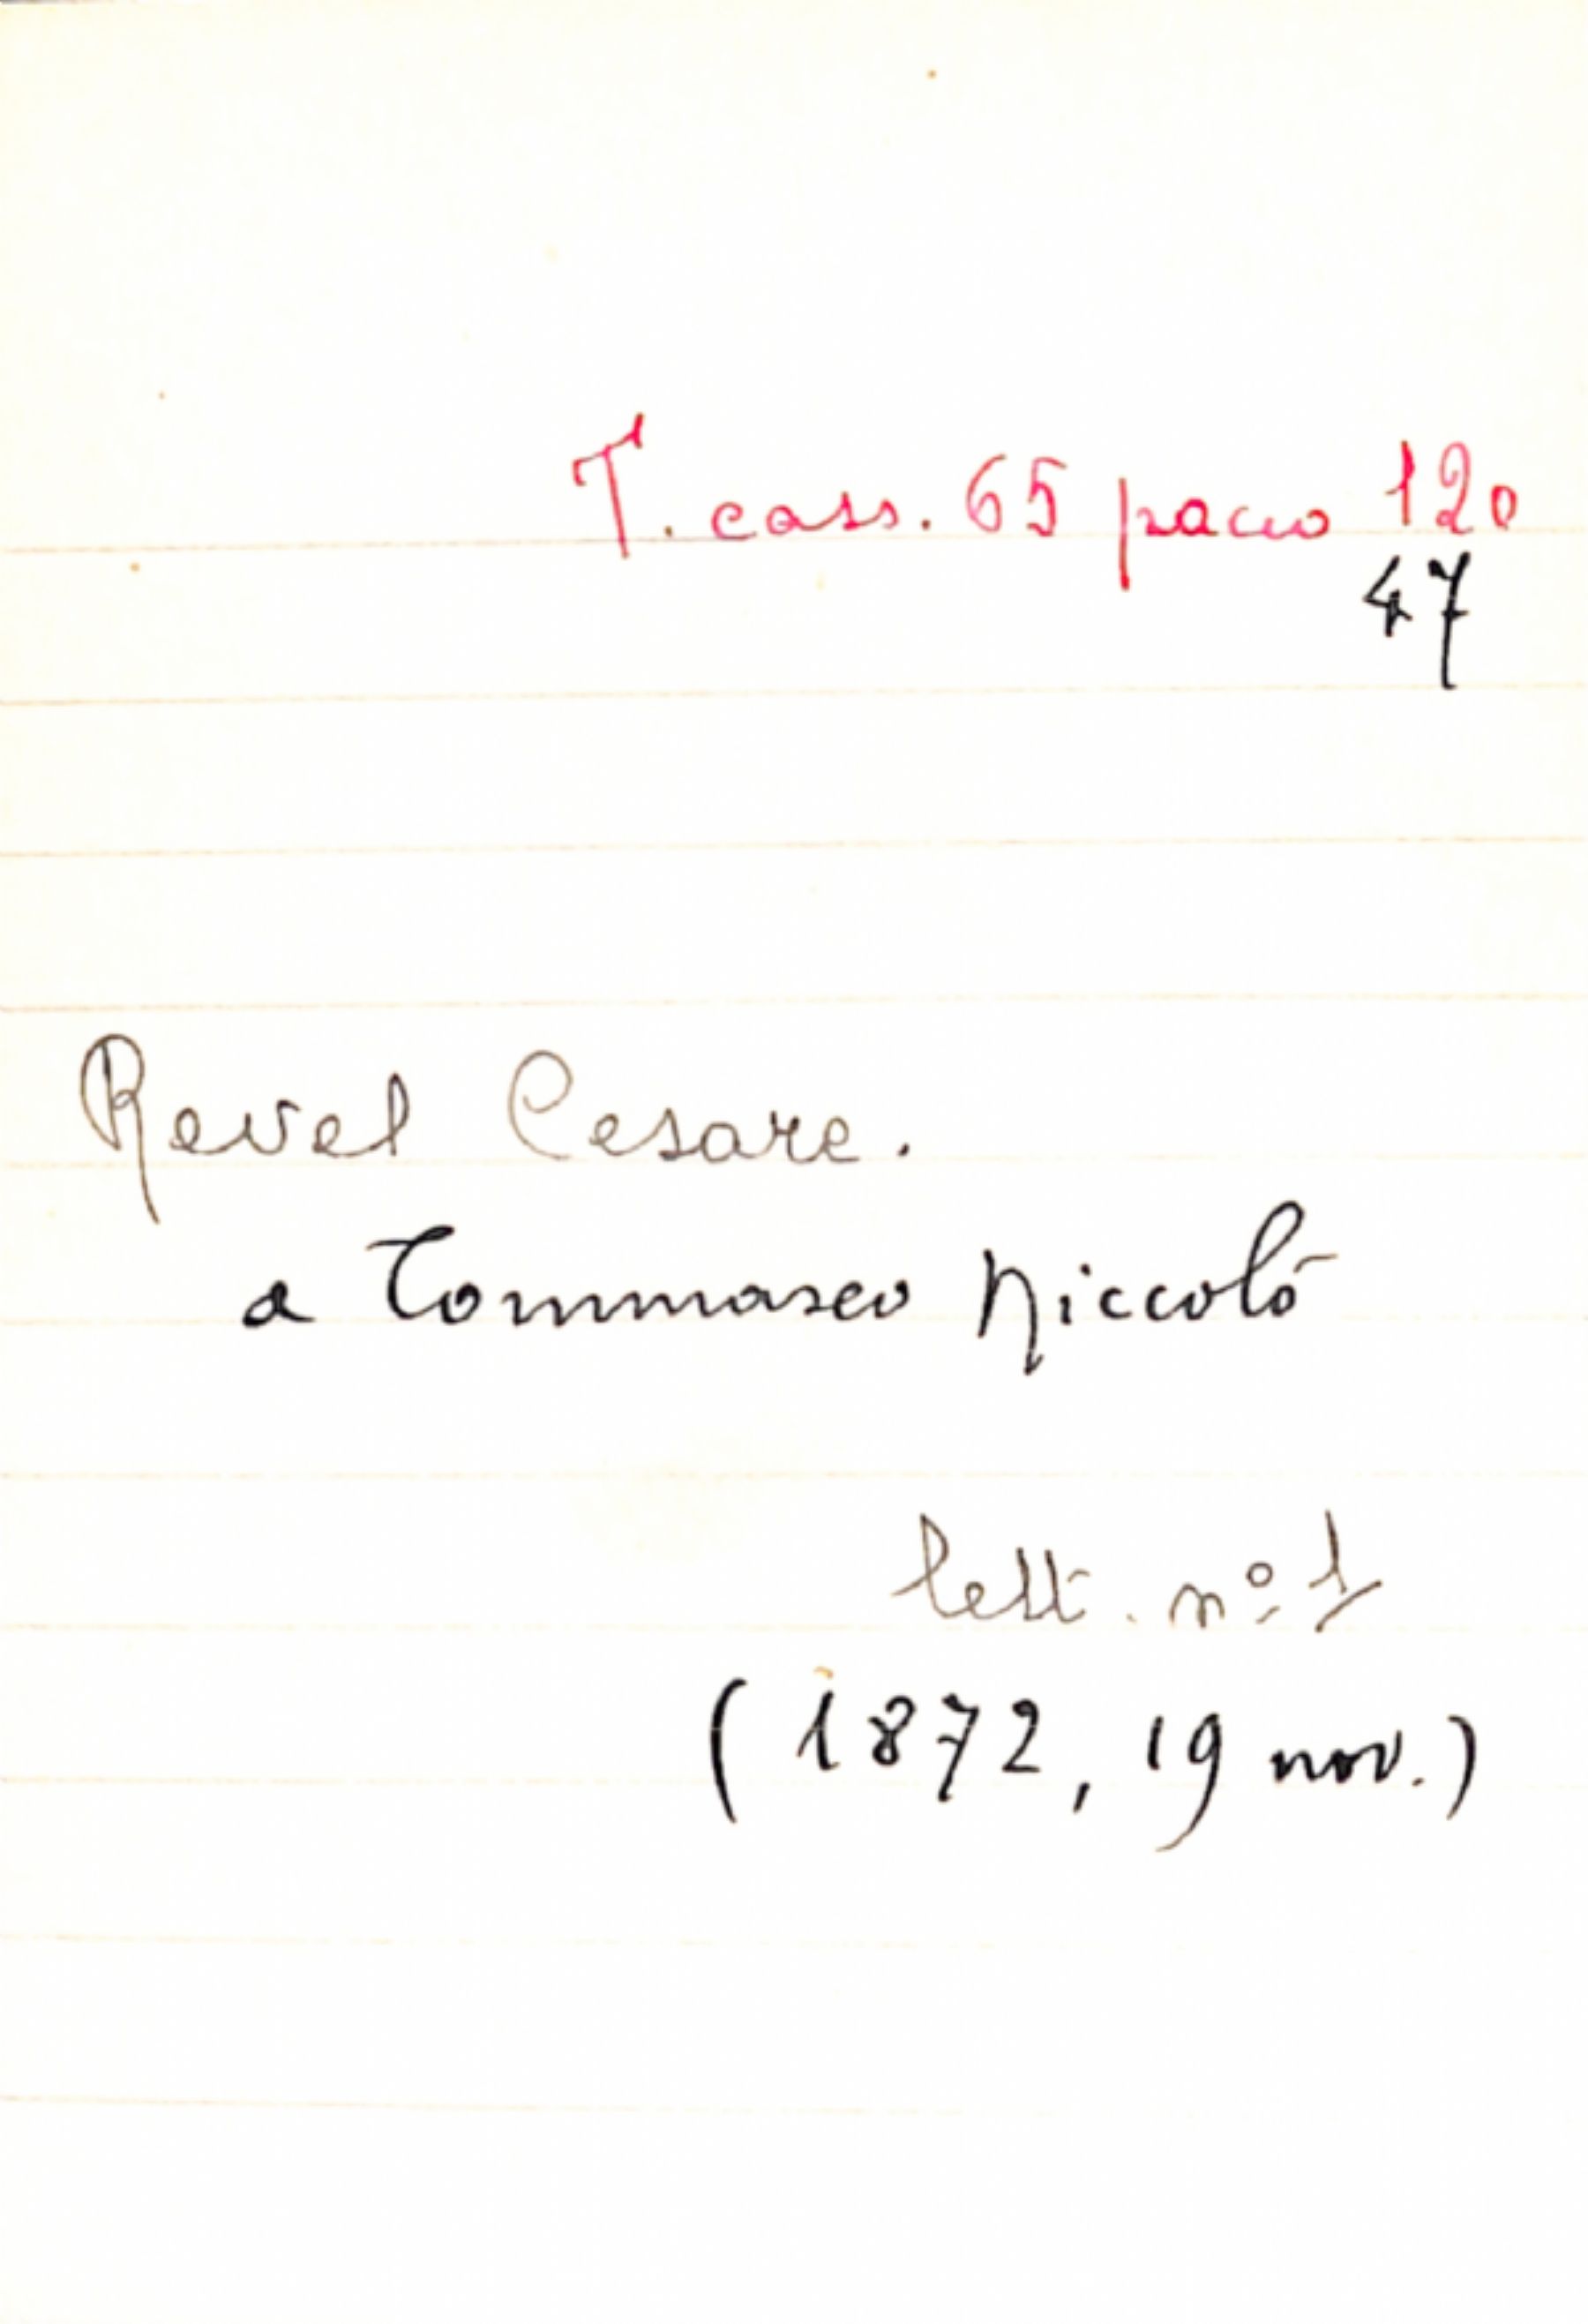 T. cass. 65 pacco 120
47
Revel Cesare.
a Tommaseo Niccolò
lett. nº 1
(1872, 19 nov.)